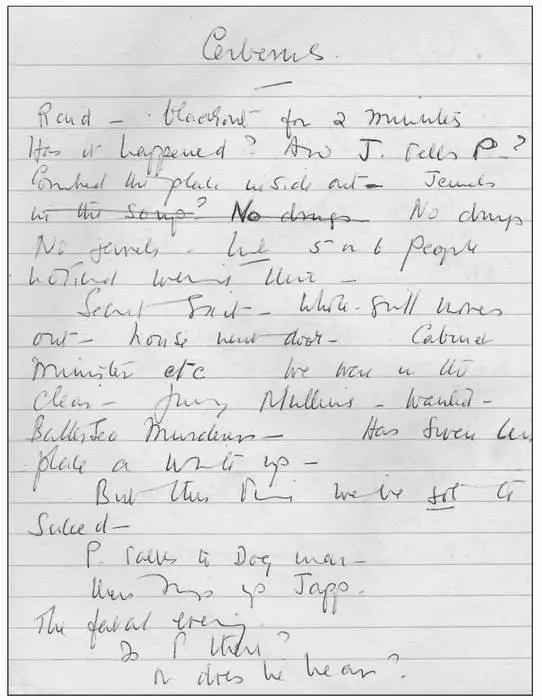 Cerberus.
Raid – blackout for 2 minutes
Has it happened? And J. tells P.?
Combed the place inside out – Jewels
in the soup? No drugs – No drugs
No jewels – but 5 or 6 people
noticed were there –
Secret Exit – whole stuff moves
out – house next door – Cabinet
Minister etc We were in the
clear – Jimmy Mullins – wanted –
Battersea Murderers – Has given
place a write up –
But this time we've got to
succeed –
P. talks to Dog man –
then rings up Japp.
The fatal evening
Is P there?
or does he hear?